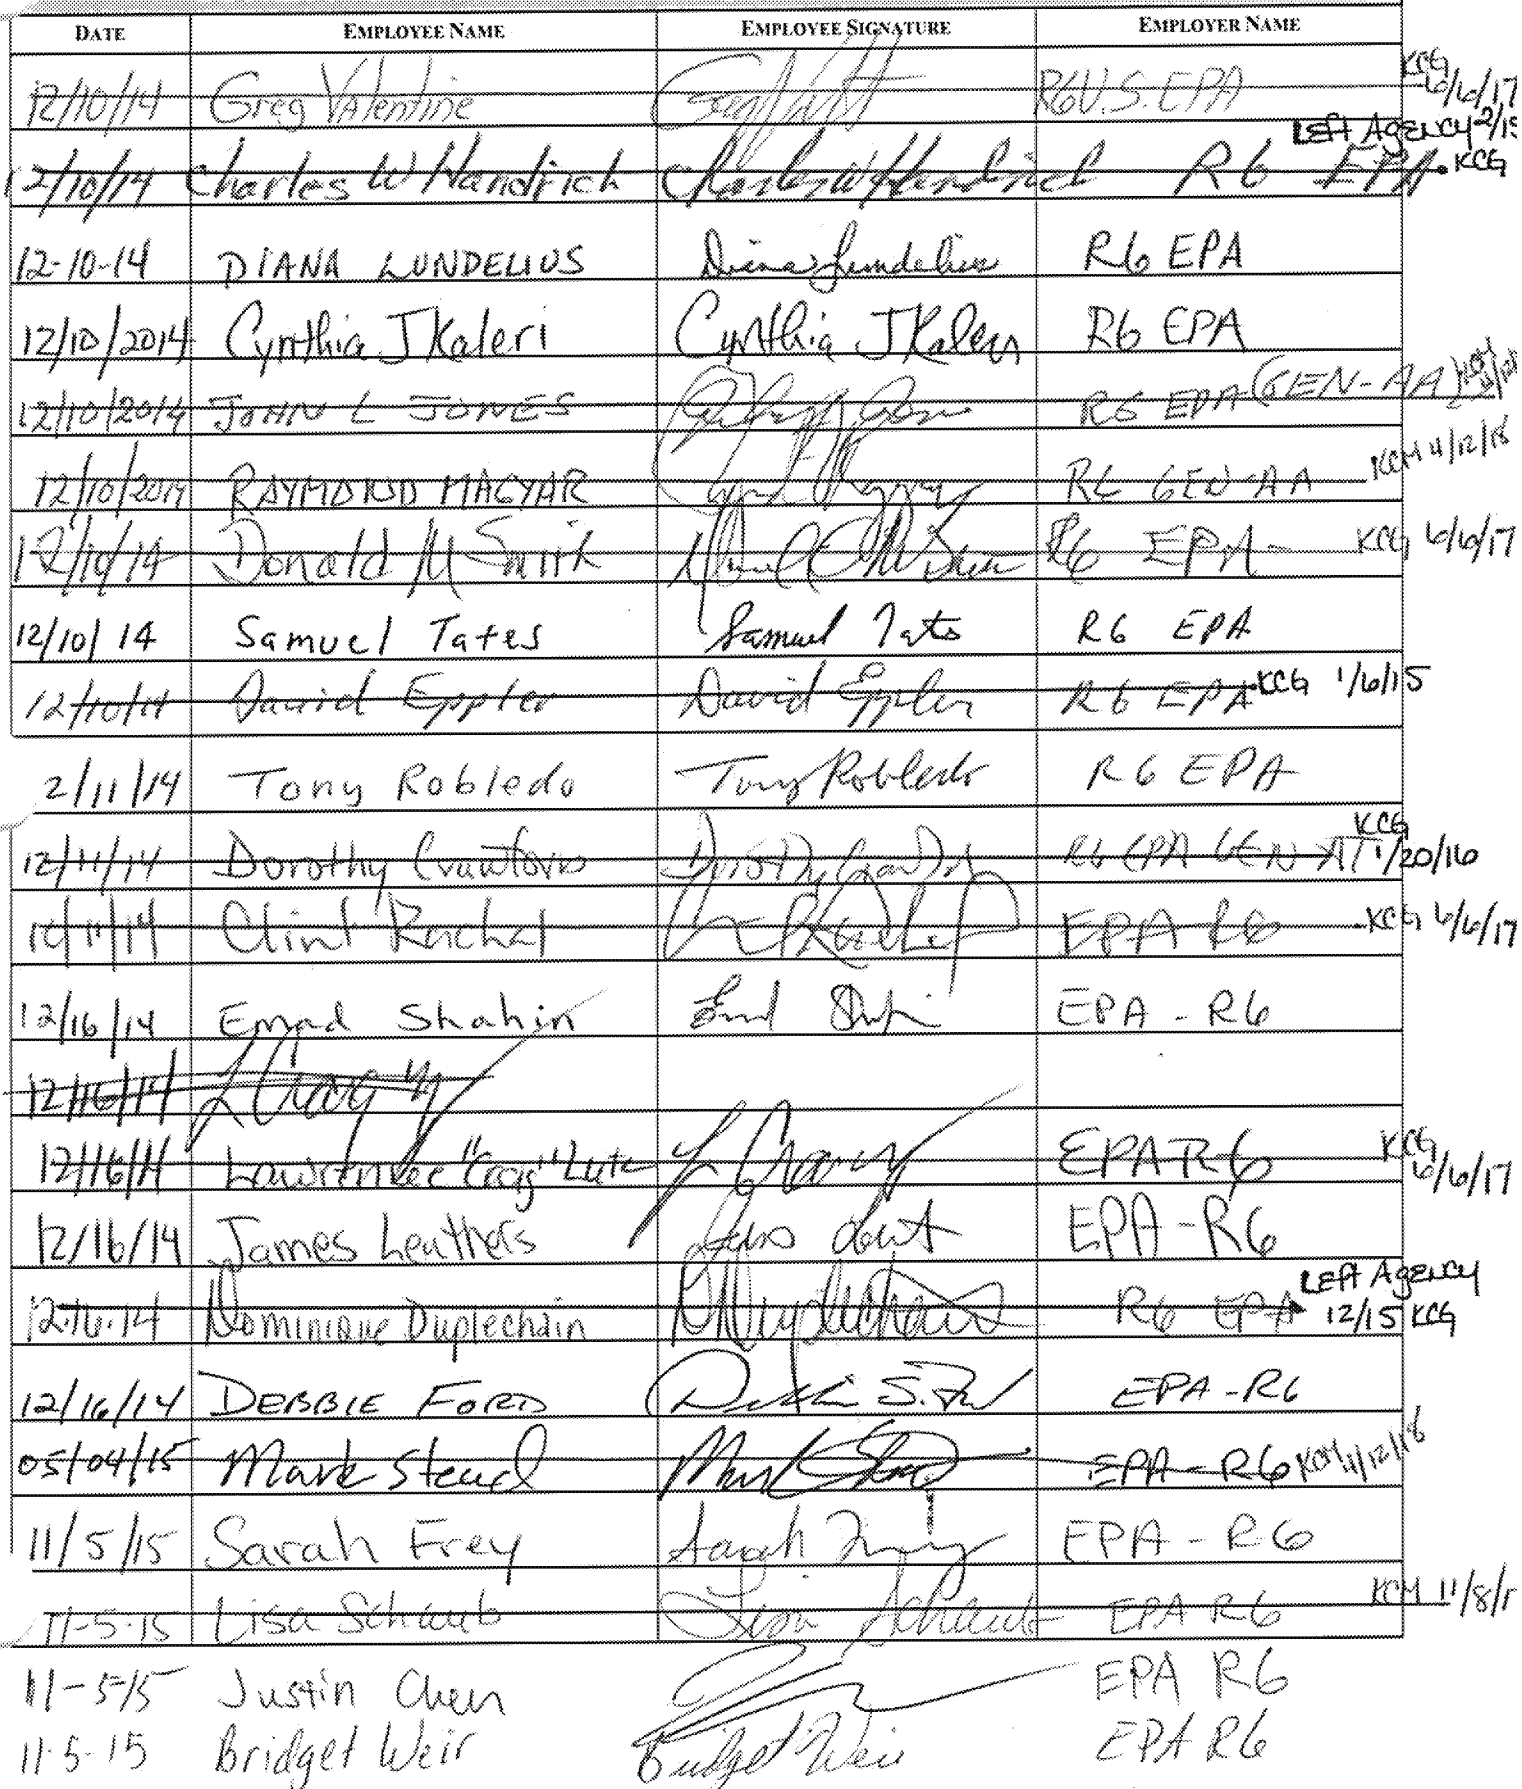 DATE EMPLOYEE NAME EMPLOYEE SIGNATURE EMPLOYER NAME
KCG
12/10/14 Greg Valentine R6 U.S. EPA 6/6/17
LEFT AGENCY 2/15
12/10/14 Charles W Handrich Charles W Hendrich R6 EPA KCG
12-10-14 DIANA LUNDELIUS Diana Lundelius R6 EPA
12/10/2014 Cynthia J Kaleri Cynthia J Kaleri R6 EPA
12/10/2014 JOHN L JONES R6 EPA (GEN-AA)
12/10/2014 RAYMOND MAGYAR R6 GEN-AA KCM 4/12/18
12/10/14 Donald M Smith R6 EPA KCG 6/6/17
12/10/14 Samuel Tates Samuel Tates R6 EPA
12/10/14 David Eppler David Eppler R6 EPA KCG 1/6/15
2/11/14 Tony Robledo Tony Robledo R6 EPA
KCG
12/11/14 Dorothy Crawford Dorothy Crawford R6 EPA GEN 1/20/16
Clint Rachal EPA R6 KCG 6/6/17
12/16/14 Emad Shahin EPA - R6
12/16/14 L Craig
12/16/14 Lawrence "Craig" Lutz EPA R6 KCG
6/6/17
12/16/14 James Leathers EPA - R6
LEFT AGENCY
12-16-14 Dominique Duplechain R6 EPA 12/15 KCG
12/16/14 DEBBIE FORD EPA - R6
05/04/15 Mark Stead EPA - R6 KCM
11/5/15 Sarah Frey Sarah Frey EPA - R6
11-5-15 Lisa Schaub Lisa Schaub EPA R6 KCM 11/8/1
11-5-15 Justin Chen EPA R6
11-5-15 Bridget Weir Bridget Weir EPA R6